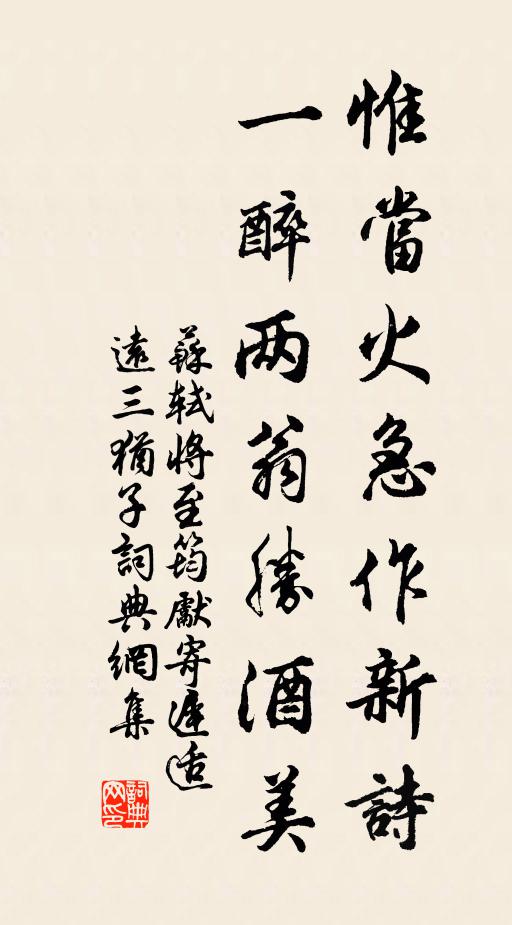 惟當火急作新詩
一醉两翁勝酒美
蘇軾將至筠獻寄遲适
遠三猶子詞典網集
詞典网印